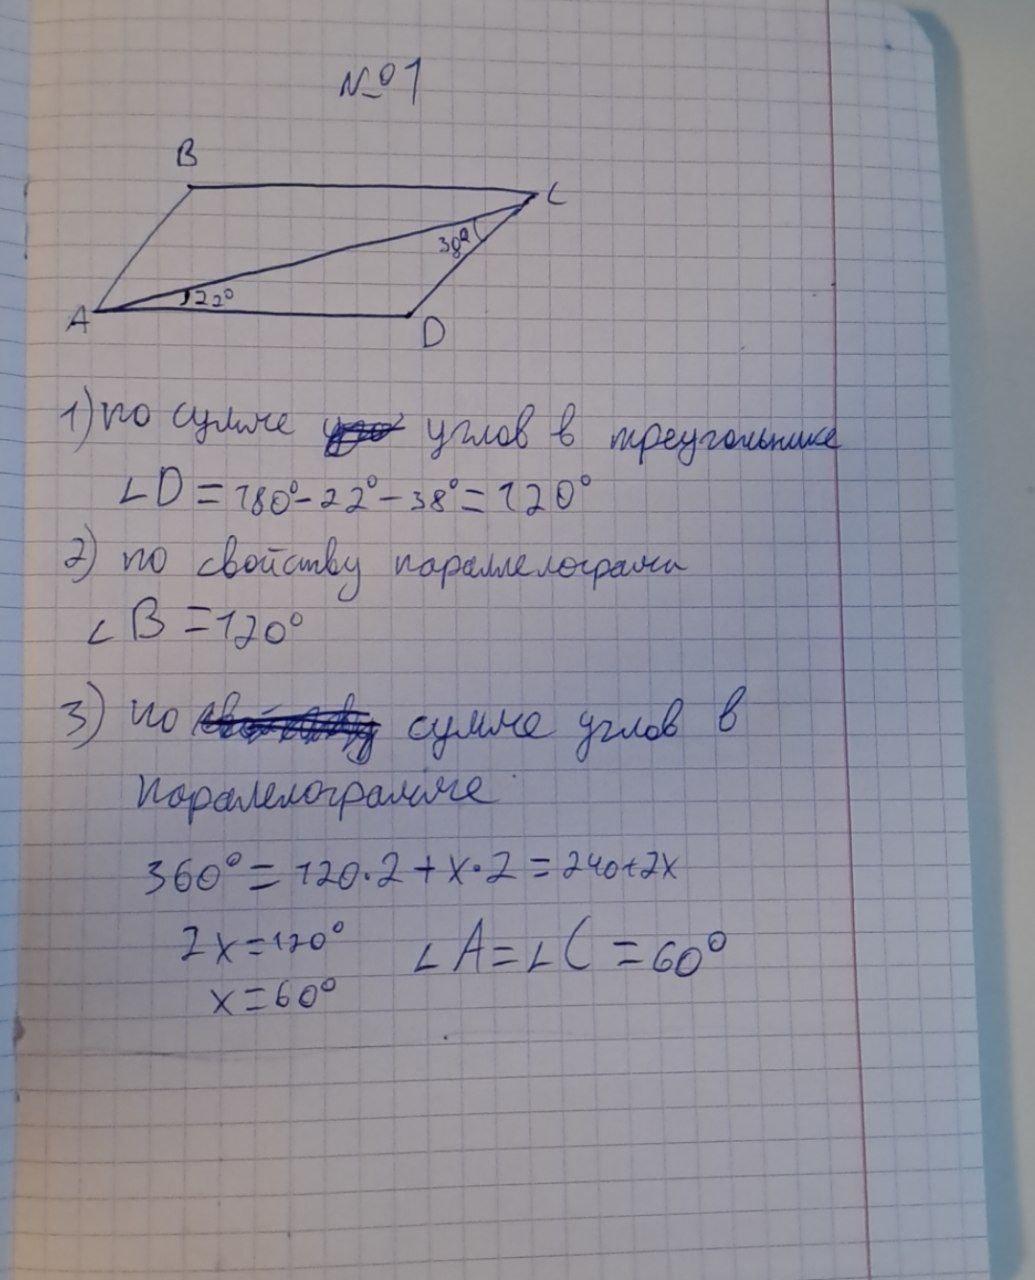 №1
B
C
38°
22°
A
D
1) по сумме углов в треугольнике
∠D = 180° - 22° - 38° = 120°
2) по свойству параллелограмм
∠B = 120°
3) по сумме углов в
параллелограмме
360° = 120·2 + x·2 = 240+2x
2x = 120° ∠A = ∠C = 60°
x = 60°